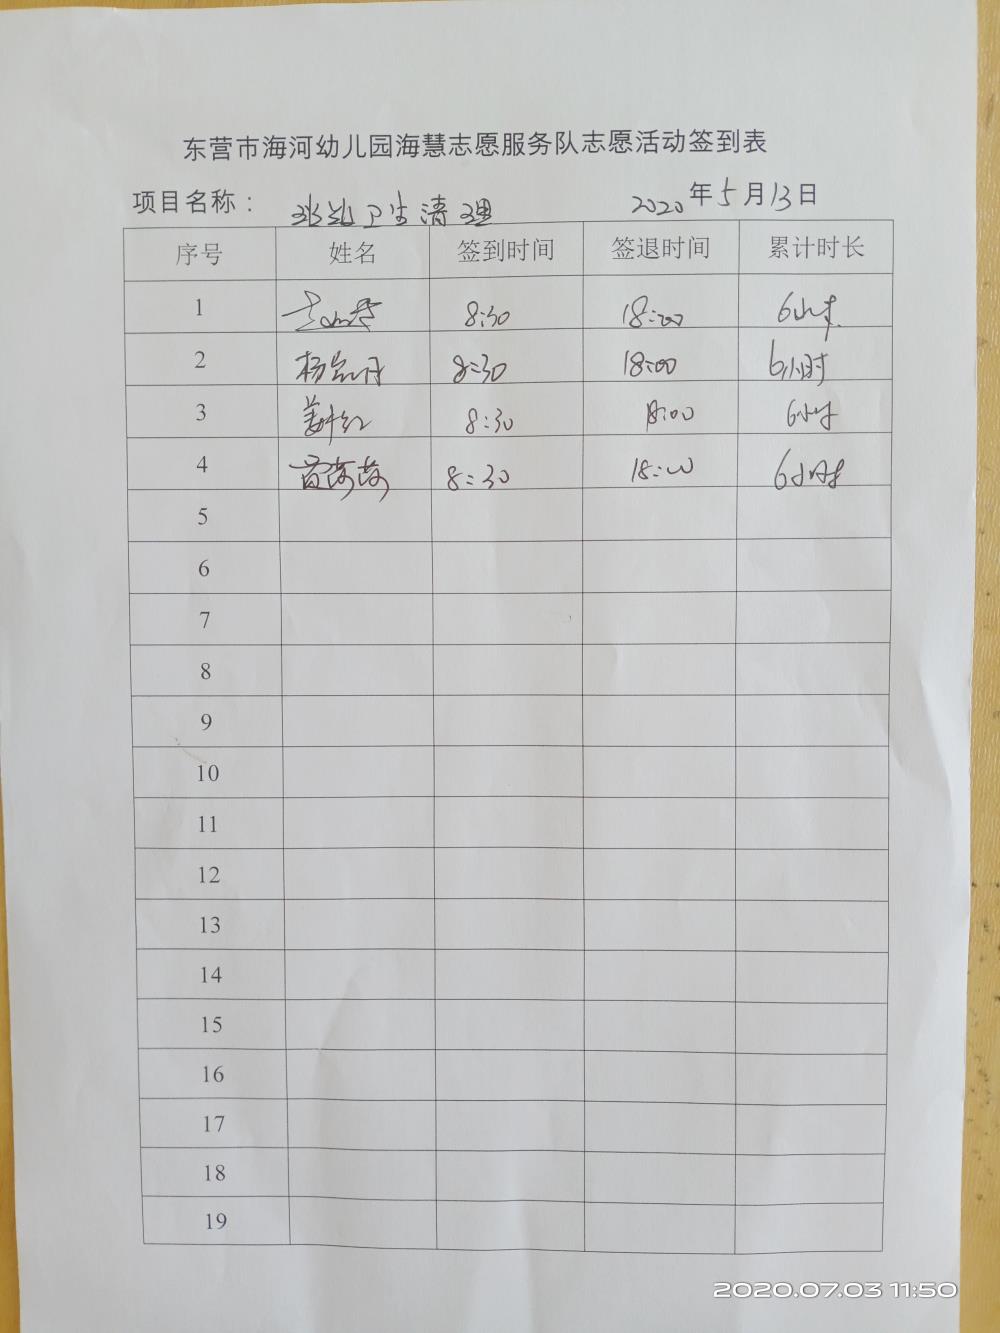 东营市海河幼儿园海慧志愿服务队志愿活动签到表
项目名称： 班级卫生清理 2020年5月13日
序号 姓名 签到时间 签退时间 累计时长
1 8:30 18:00 6小时
2 杨 8:30 18:00 6小时
3 姜 红 8:30 18:00 6小时
4 8:30 18:00 6小时
5
6
7
8
9
10
11
12
13
14
15
16
17
18
19
2020.07.03 11:50